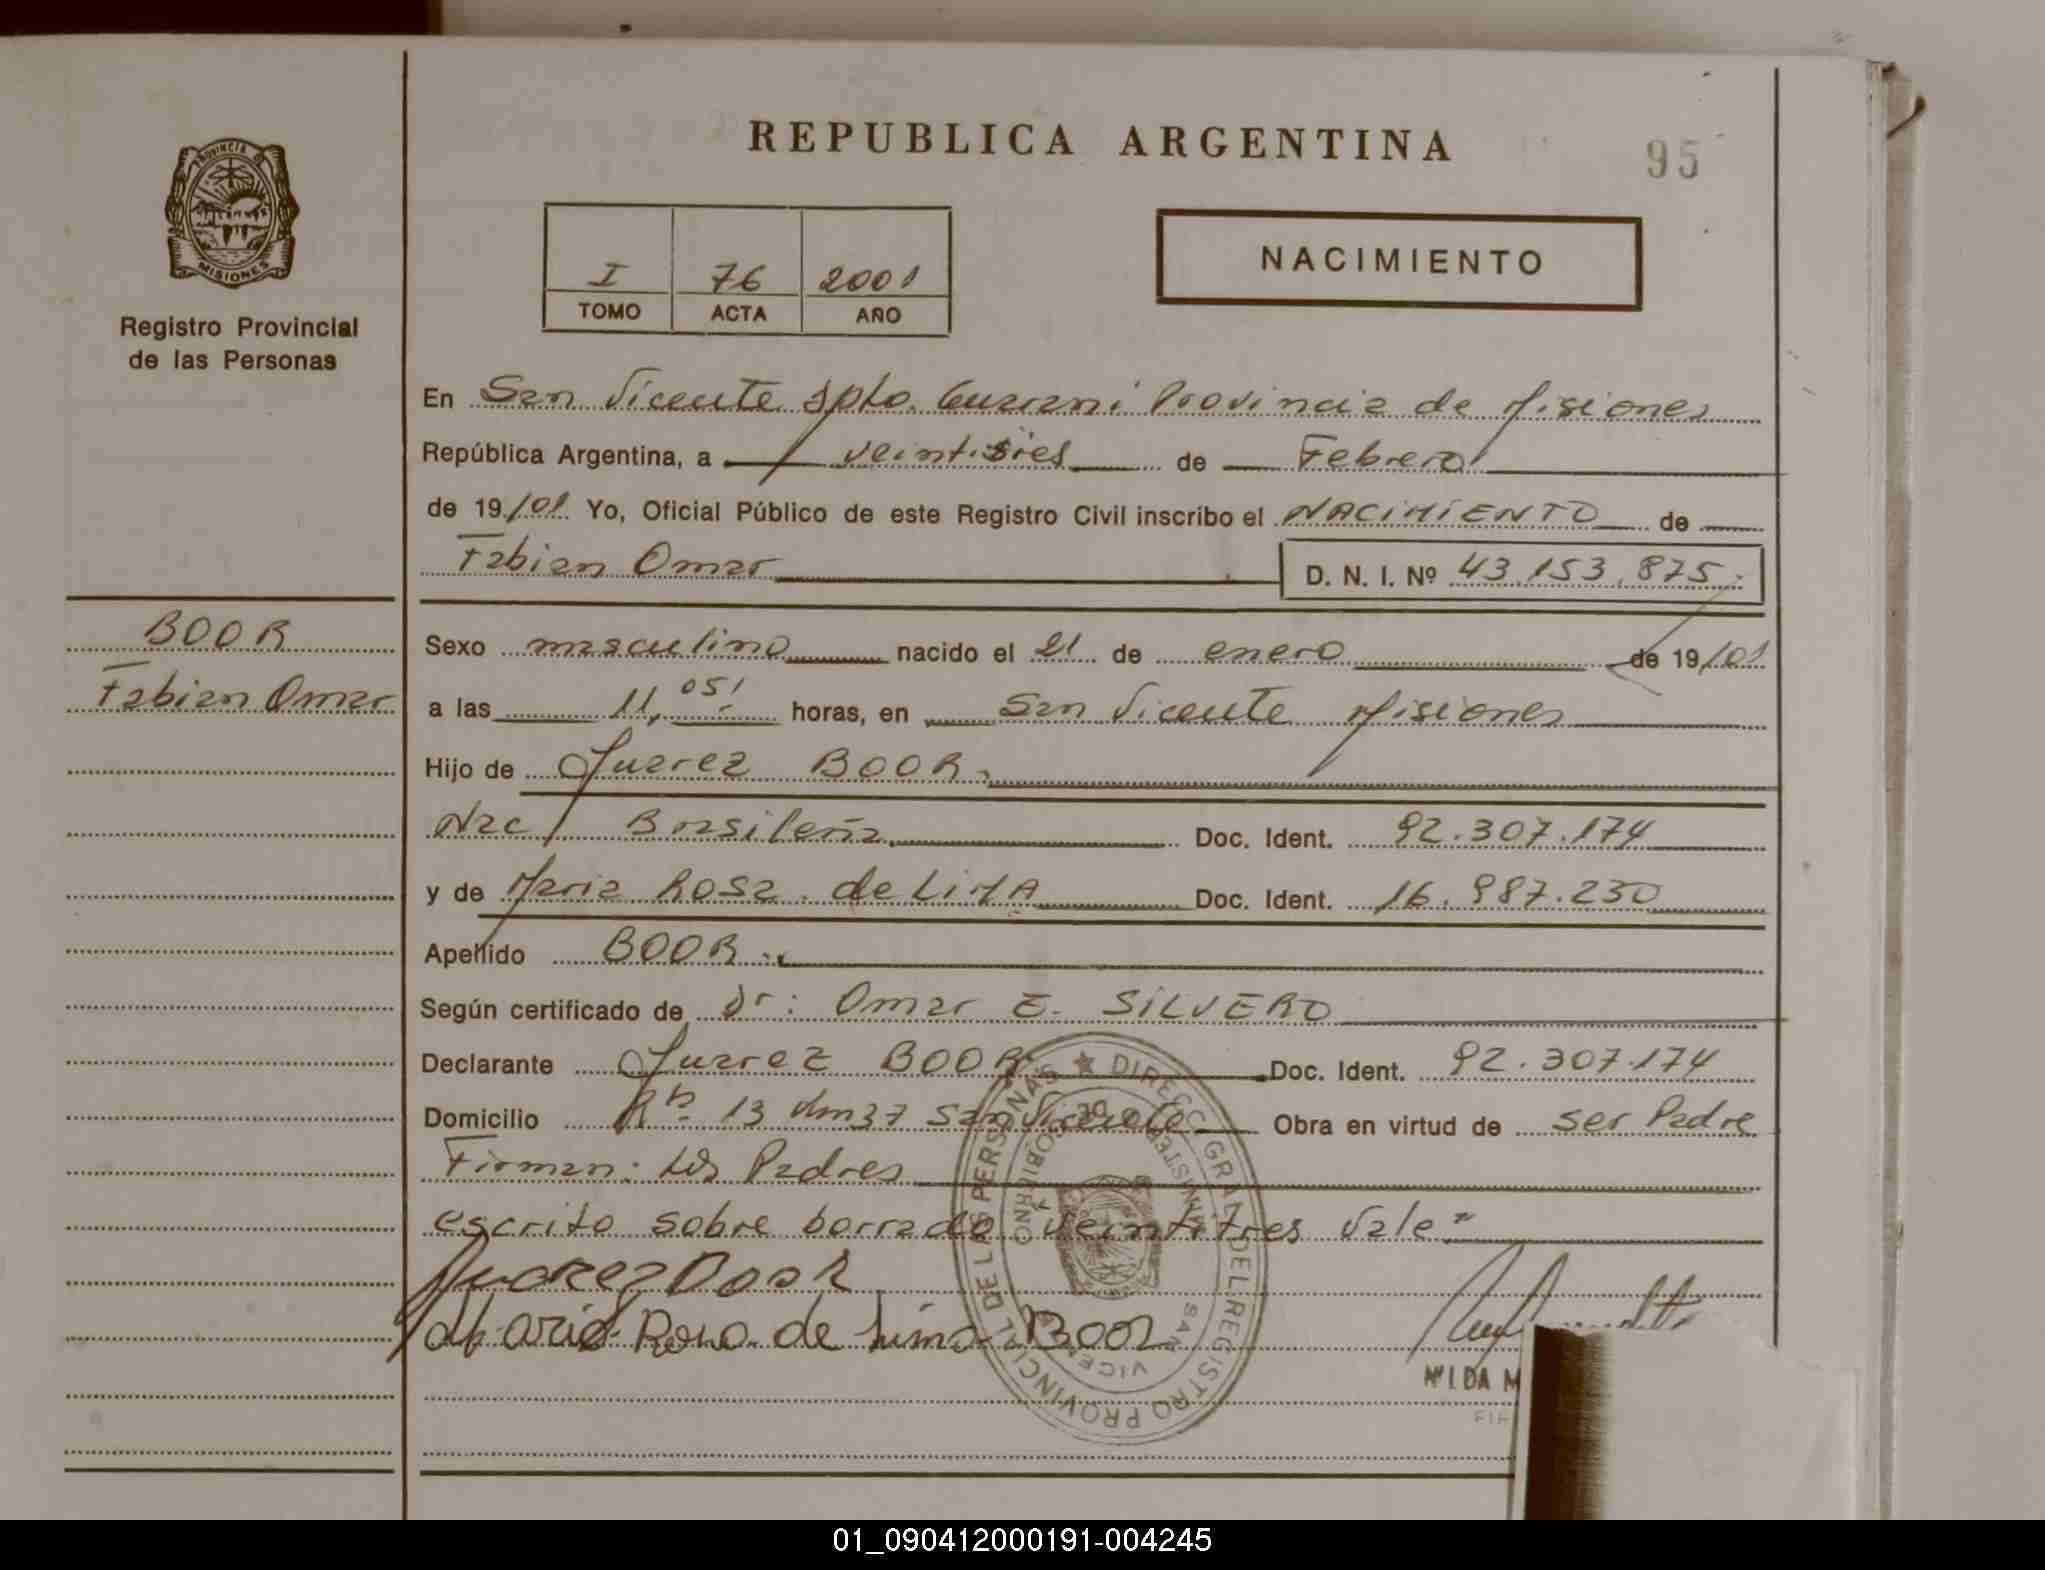 REPUBLICA ARGENTINA
95
PROVINCIA DE
MISIONES
Registro Provincial
de las Personas
I 76 2001
TOMO ACTA AÑO
NACIMIENTO
En San Vicente Dpto. Guarani Provincia de Misiones
República Argentina, a de Febrero
de 19/01 Yo, Oficial Público de este Registro Civil inscribo el NACIMIENTO de
Fabian Omar D. N. I. Nº 43.153.875.-
BOOR
Fabian Omar
Sexo masculino nacido el 21 de enero de 19/01
a las 11,05' horas, en San Vicente Misiones
Hijo de Juarez BOOR
Nac Brasileña Doc. Ident. 92.307.174
y de Maria Rosa de LIMA Doc. Ident. 16.987.230
Apellido BOOR.-
Según certificado de Dr: Omar E. SILVERO
Declarante Juarez BOOR Doc. Ident. 92.307.174
Domicilio 13 Km 37 San Vicente Obra en virtud de ser Padre
Firman: Los Padres
escrito sobre borrado "veintitres Vale"
Juarez Boor
Maria Rosa de Lima Boor
DIRECC. GRAL. DEL REGISTRO PROVINCIAL DE LAS PERSONAS
MINISTERIO DE GOBIERNO
SAN VICENTE
01_090412000191-004245